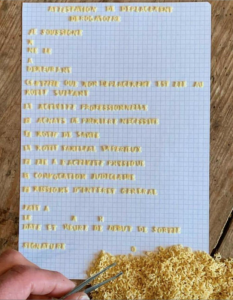 ATTESTATION DE DEPLACEMENT
DEROGATOIRE
JE SOUSSIGNE
A
NE LE
A
DEMEURANT
CERTIFIE QUE MON DEPLACEMENT EST LIE AU
MOTIF SUIVANT
ACTIVITE PROFESSIONNELLE
ACHATS DE PREMIERE NECESSITE
MOTIF DE SANTE
MOTIF FAMILIAL IMPERIEUX
LIE A L ACTIVITE PHYSIQUE
CONVOCATION JUDICIAIRE
MISSIONS D'INTERET GENERAL
FAIT A
LE A H
DATE ET HEURE DE DEBUT DE SORTIE
SIGNATURE